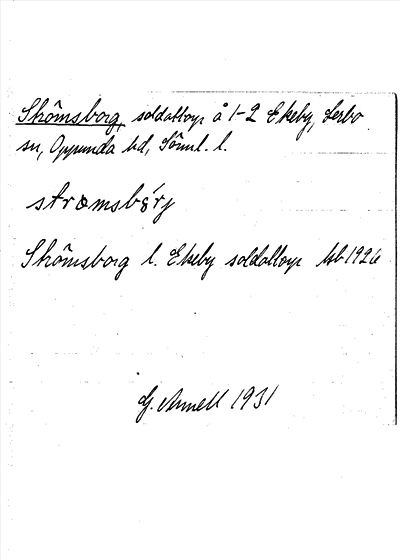 Strömsborg, soldattorp å 1-2 Ekeby, Lerbo
sn, Oppunda hd, Söml. l.
strømsbŏ́rj
Strömsborg l. Ekeby soldattorp Hb 1926
G. Annell 1931